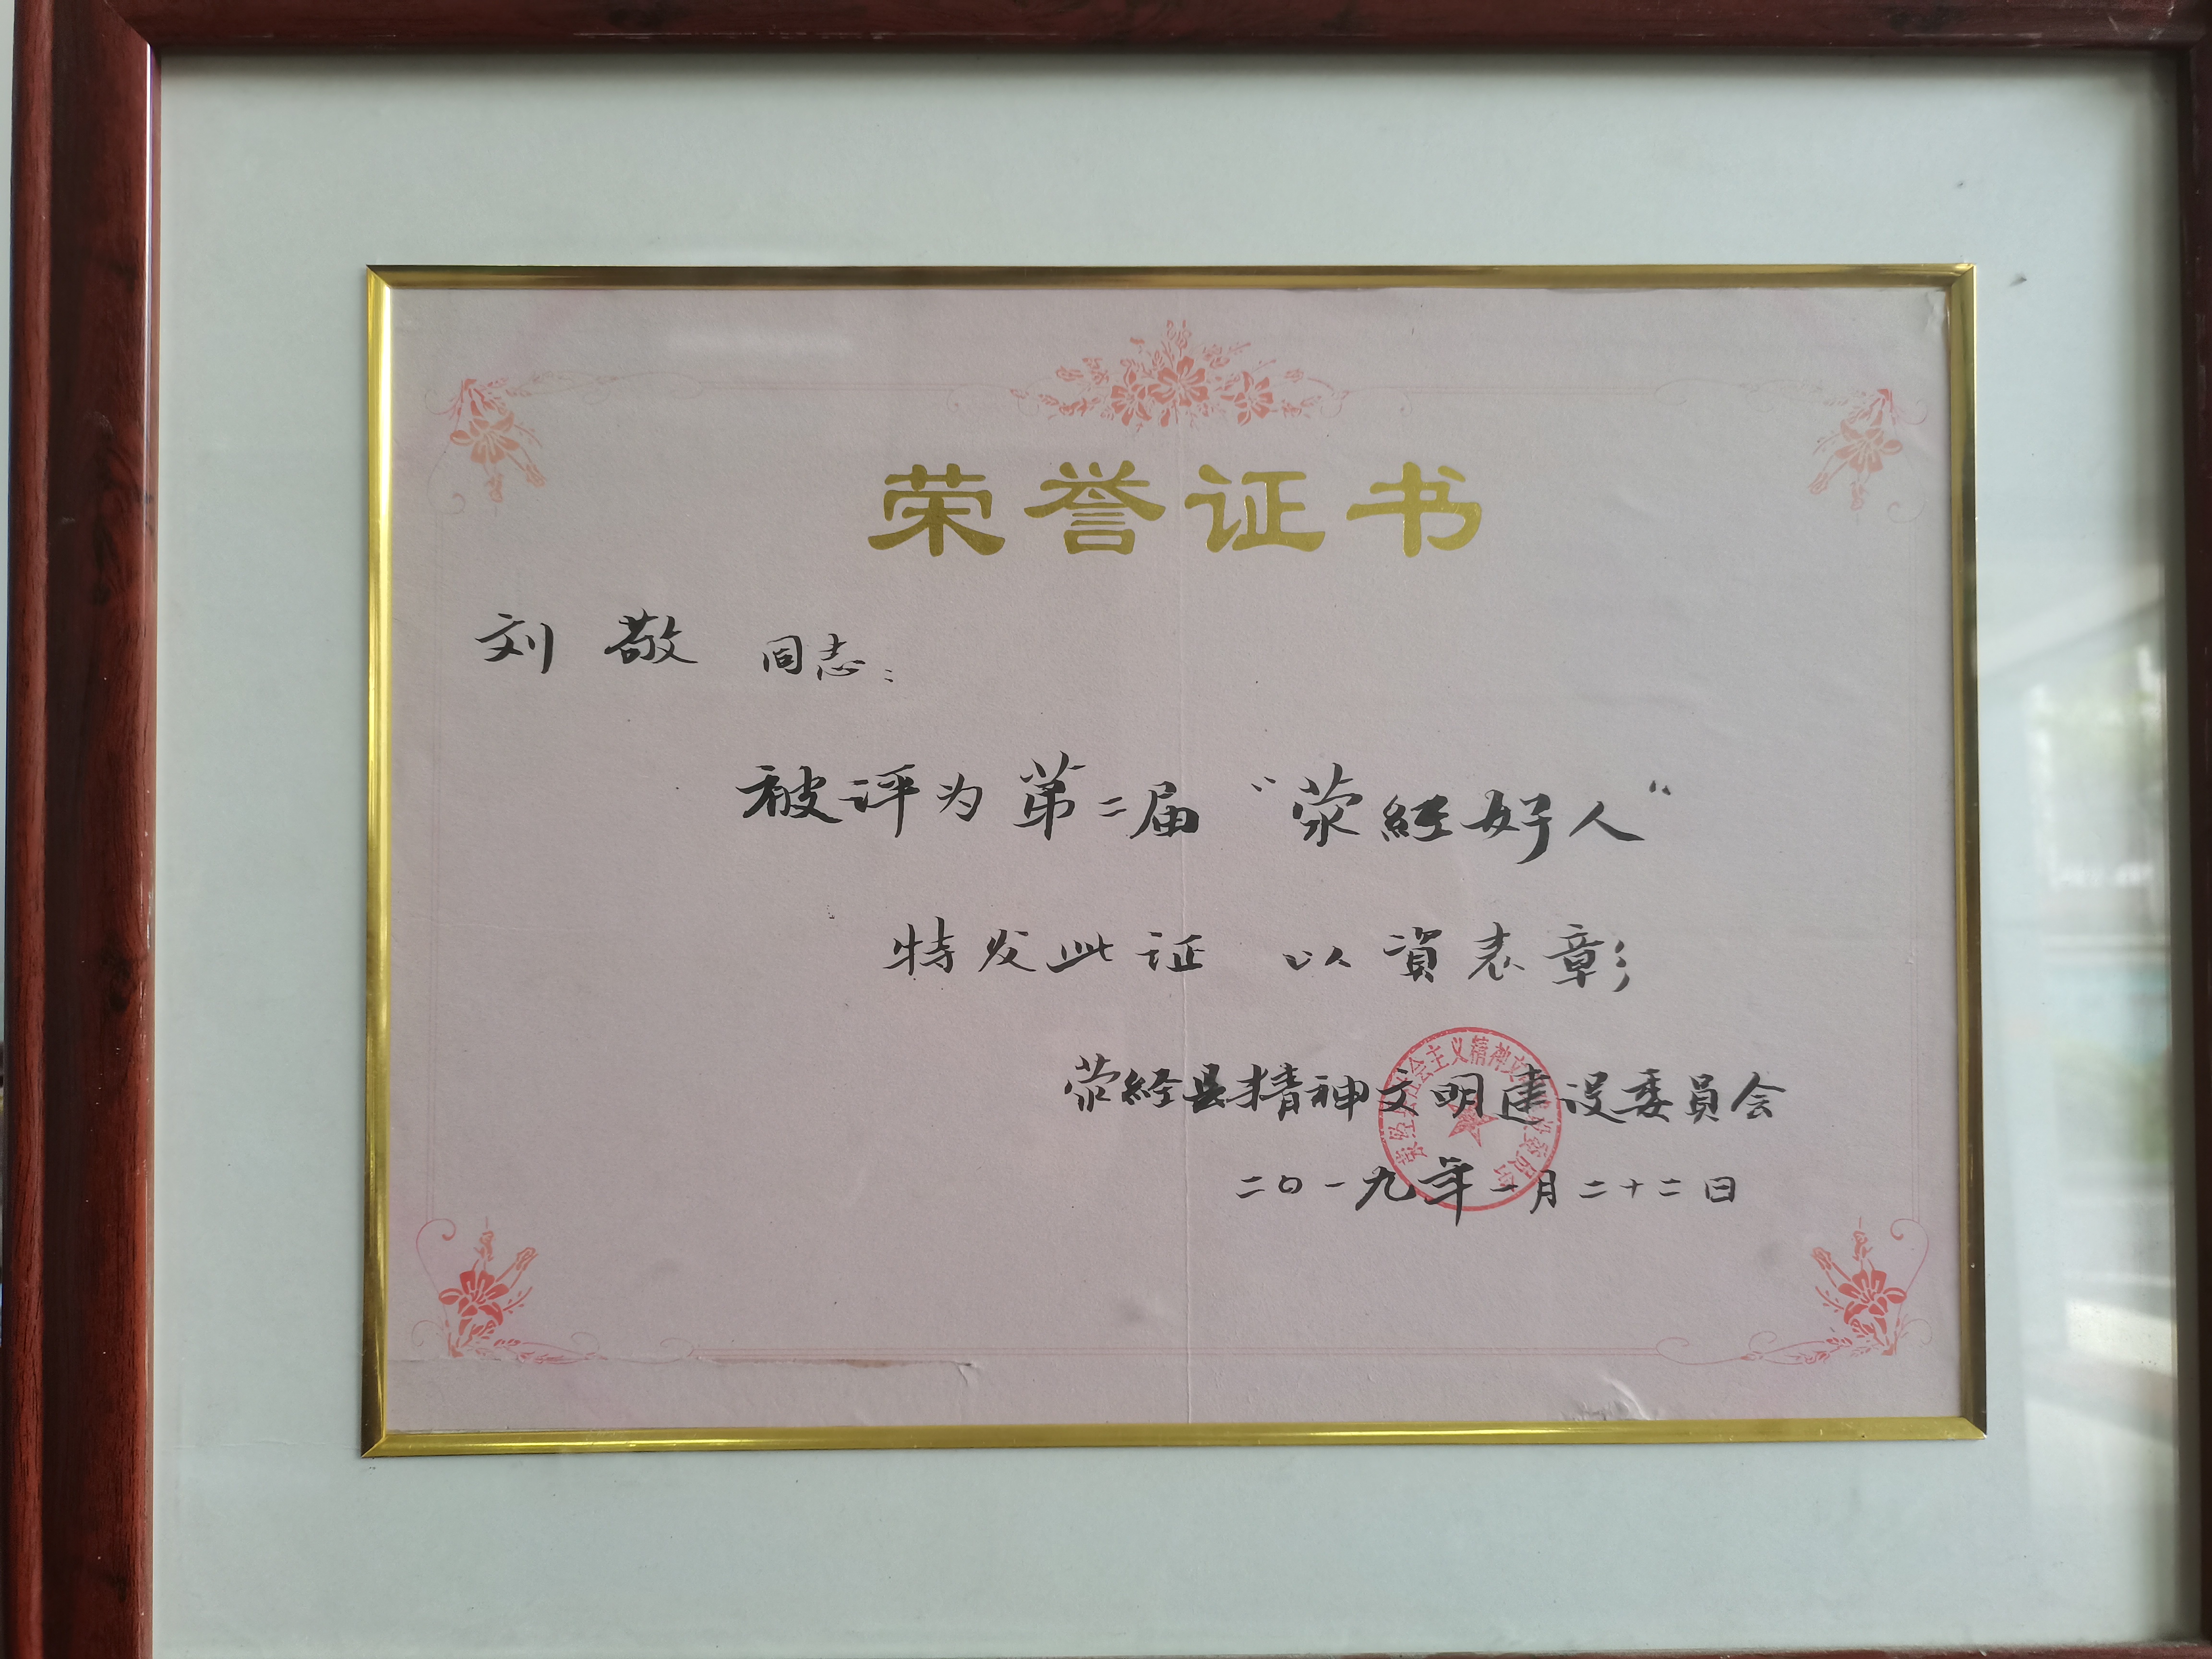 荣誉证书
刘敬 同志：
被评为第二届“荥经好人”
特发此证 以资表彰
荥经县精神文明建设委员会
二〇一九年一月二十二日
荥经县社会主义精神文明建设委员会